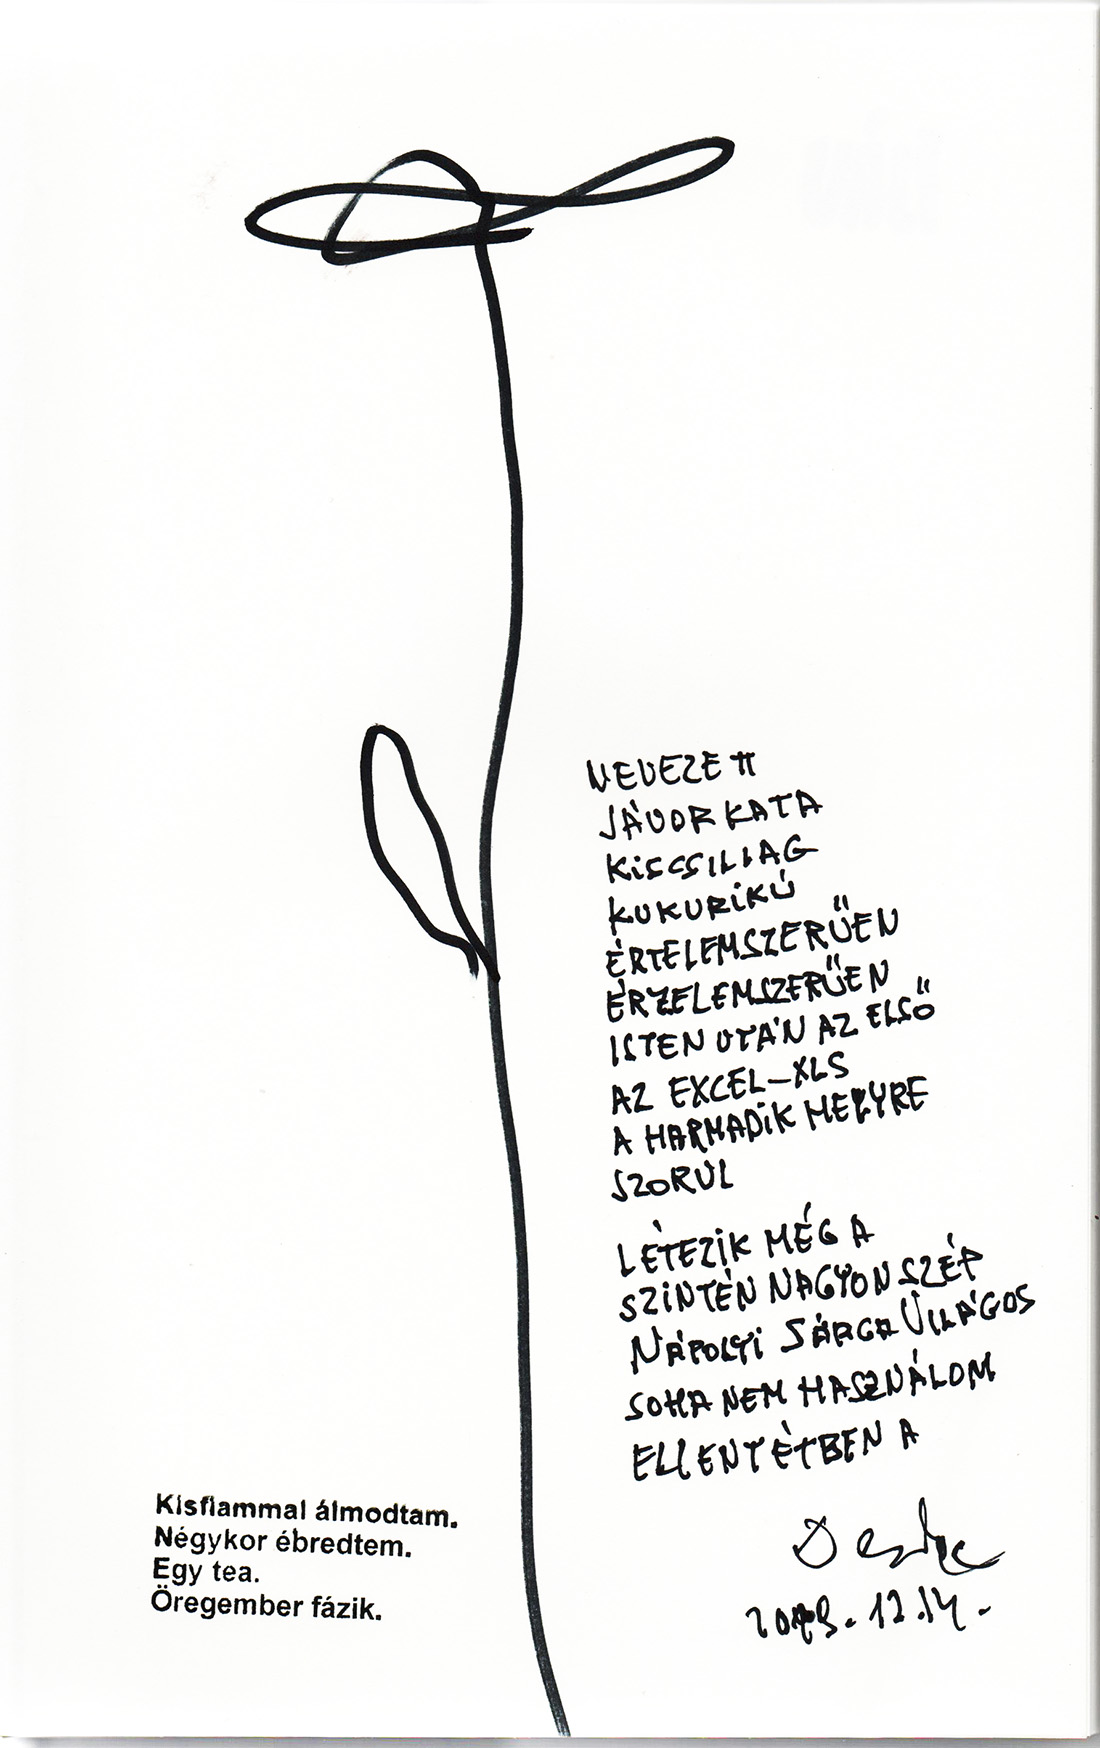 NEVEZETT
JÁVOR KATA
KISCSILLAG
KUKURIKÚ
ÉRTELEMSZERŰEN
ÉRZELEMSZERŰEN
ISTEN UTÁN AZ ELSŐ
AZ EXCEL-XLS
A HARMADIK HELYRE
SZORUL
LÉTEZIK MÉG A
SZINTÉN NAGYON SZÉP
NÁPOLYI SÁRGA VILÁGOS
SOHA NEM HASZNÁLOM
ELLENTÉTBEN A
12.14.
Kisfiammal álmodtam.
Négykor ébredtem.
Egy tea.
Öregember fázik.